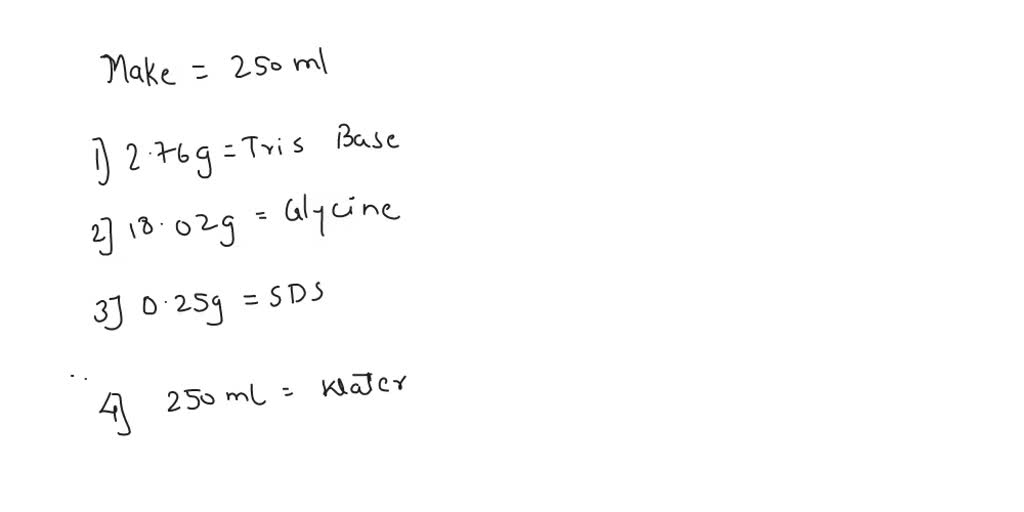 Make = 250 ml
1] 2.76g = Tris Base
2] 18.02g = Glycine
3] 0.25g = SDS
4] 250 ml = Water